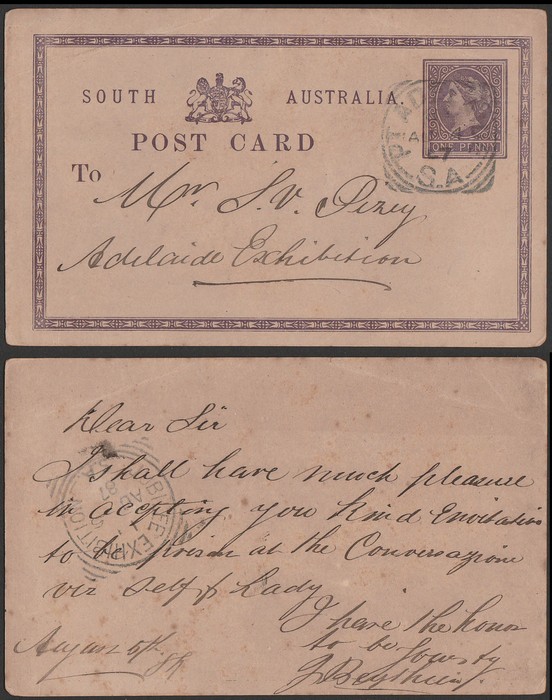 SOUTH AUSTRALIA.
POST CARD
ONE PENNY
PT AD
S.A
To
Mr. S. V. Pizey
Adelaide Exhibition
Dear Sir
I shall have much pleasure
in accepting you Kind Envitation
to be prisen at the Conversazione
viz self & Lady
I have the honor
to be
yours ty
August 5th
87
JUBILEE EXHIBITION
AU
87